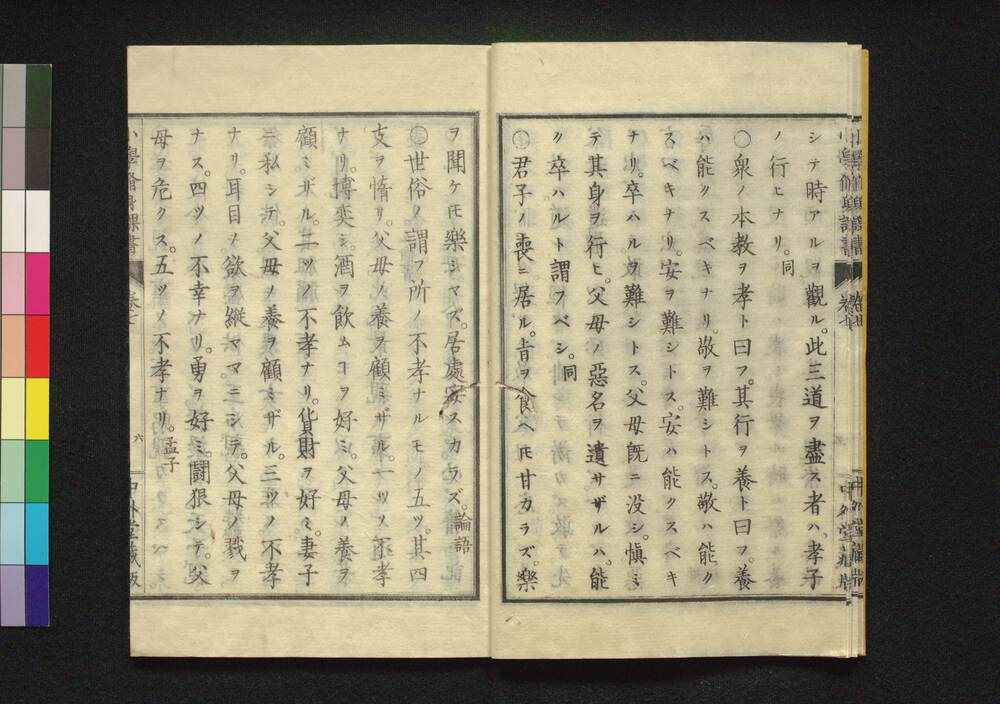 シテ時アルヲ觀ル。此三道ヲ盡ス者ハ、孝子
ノ行ヒナリ。同
〇衆ノ本教ヲ孝ト曰フ。其行ヲ養ト曰フ。養
ハ能クスベキナリ。敬ヲ難シトス。敬ハ能ク
スベキナリ。安ヲ難シトス。安ハ能クスベキ
ナリ。卒ハルヲ難シトス。父母既ニ没シ。愼ミ
テ其身ヲ行ヒ。父母ノ惡名ヲ遺サザルハ。能
ク卒ハルト謂フベシ。同
〇君子ノ喪ニ居ル。旨ヲ食ヘ𪜈甘カラズ。樂
ヲ聞ケ𪜈樂シマズ。居處安スカラズ。論語
世俗ノ謂フ所ノ不孝ナルモノ五ツ。其四
支ヲ惰リ。父母ノ養ヲ顧ミザル。一ツノ不孝
ナリ。博奕シ。酒ヲ飲ムヿヲ好ミ。父母ノ養ヲ
顧ミザル。二ツノ不孝ナリ。貨財ヲ好ミ。妻子
ニ私シテ。父母ノ養ヲ顧ミザル。三ツノ不孝
ナリ。耳目ノ欲ヲ縱ママニシテ。父母ノ戮ヲ
ナス。四ツノ不幸ナリ。勇ヲ好ミ。鬪狠シテ。父
母ヲ危クス。五ツノ不孝ナリ。孟子
小學脩身課書
卷七
六
中外堂藏版